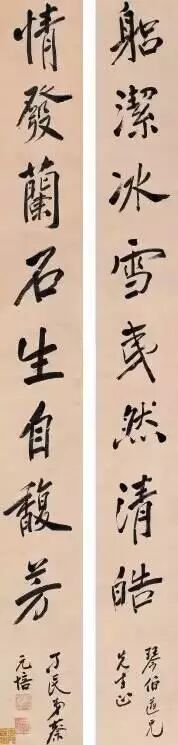 躬潔冰雪然清皓
琴伯道兄
先生正
情發蘭石生自馥芳
弟蔡
元培